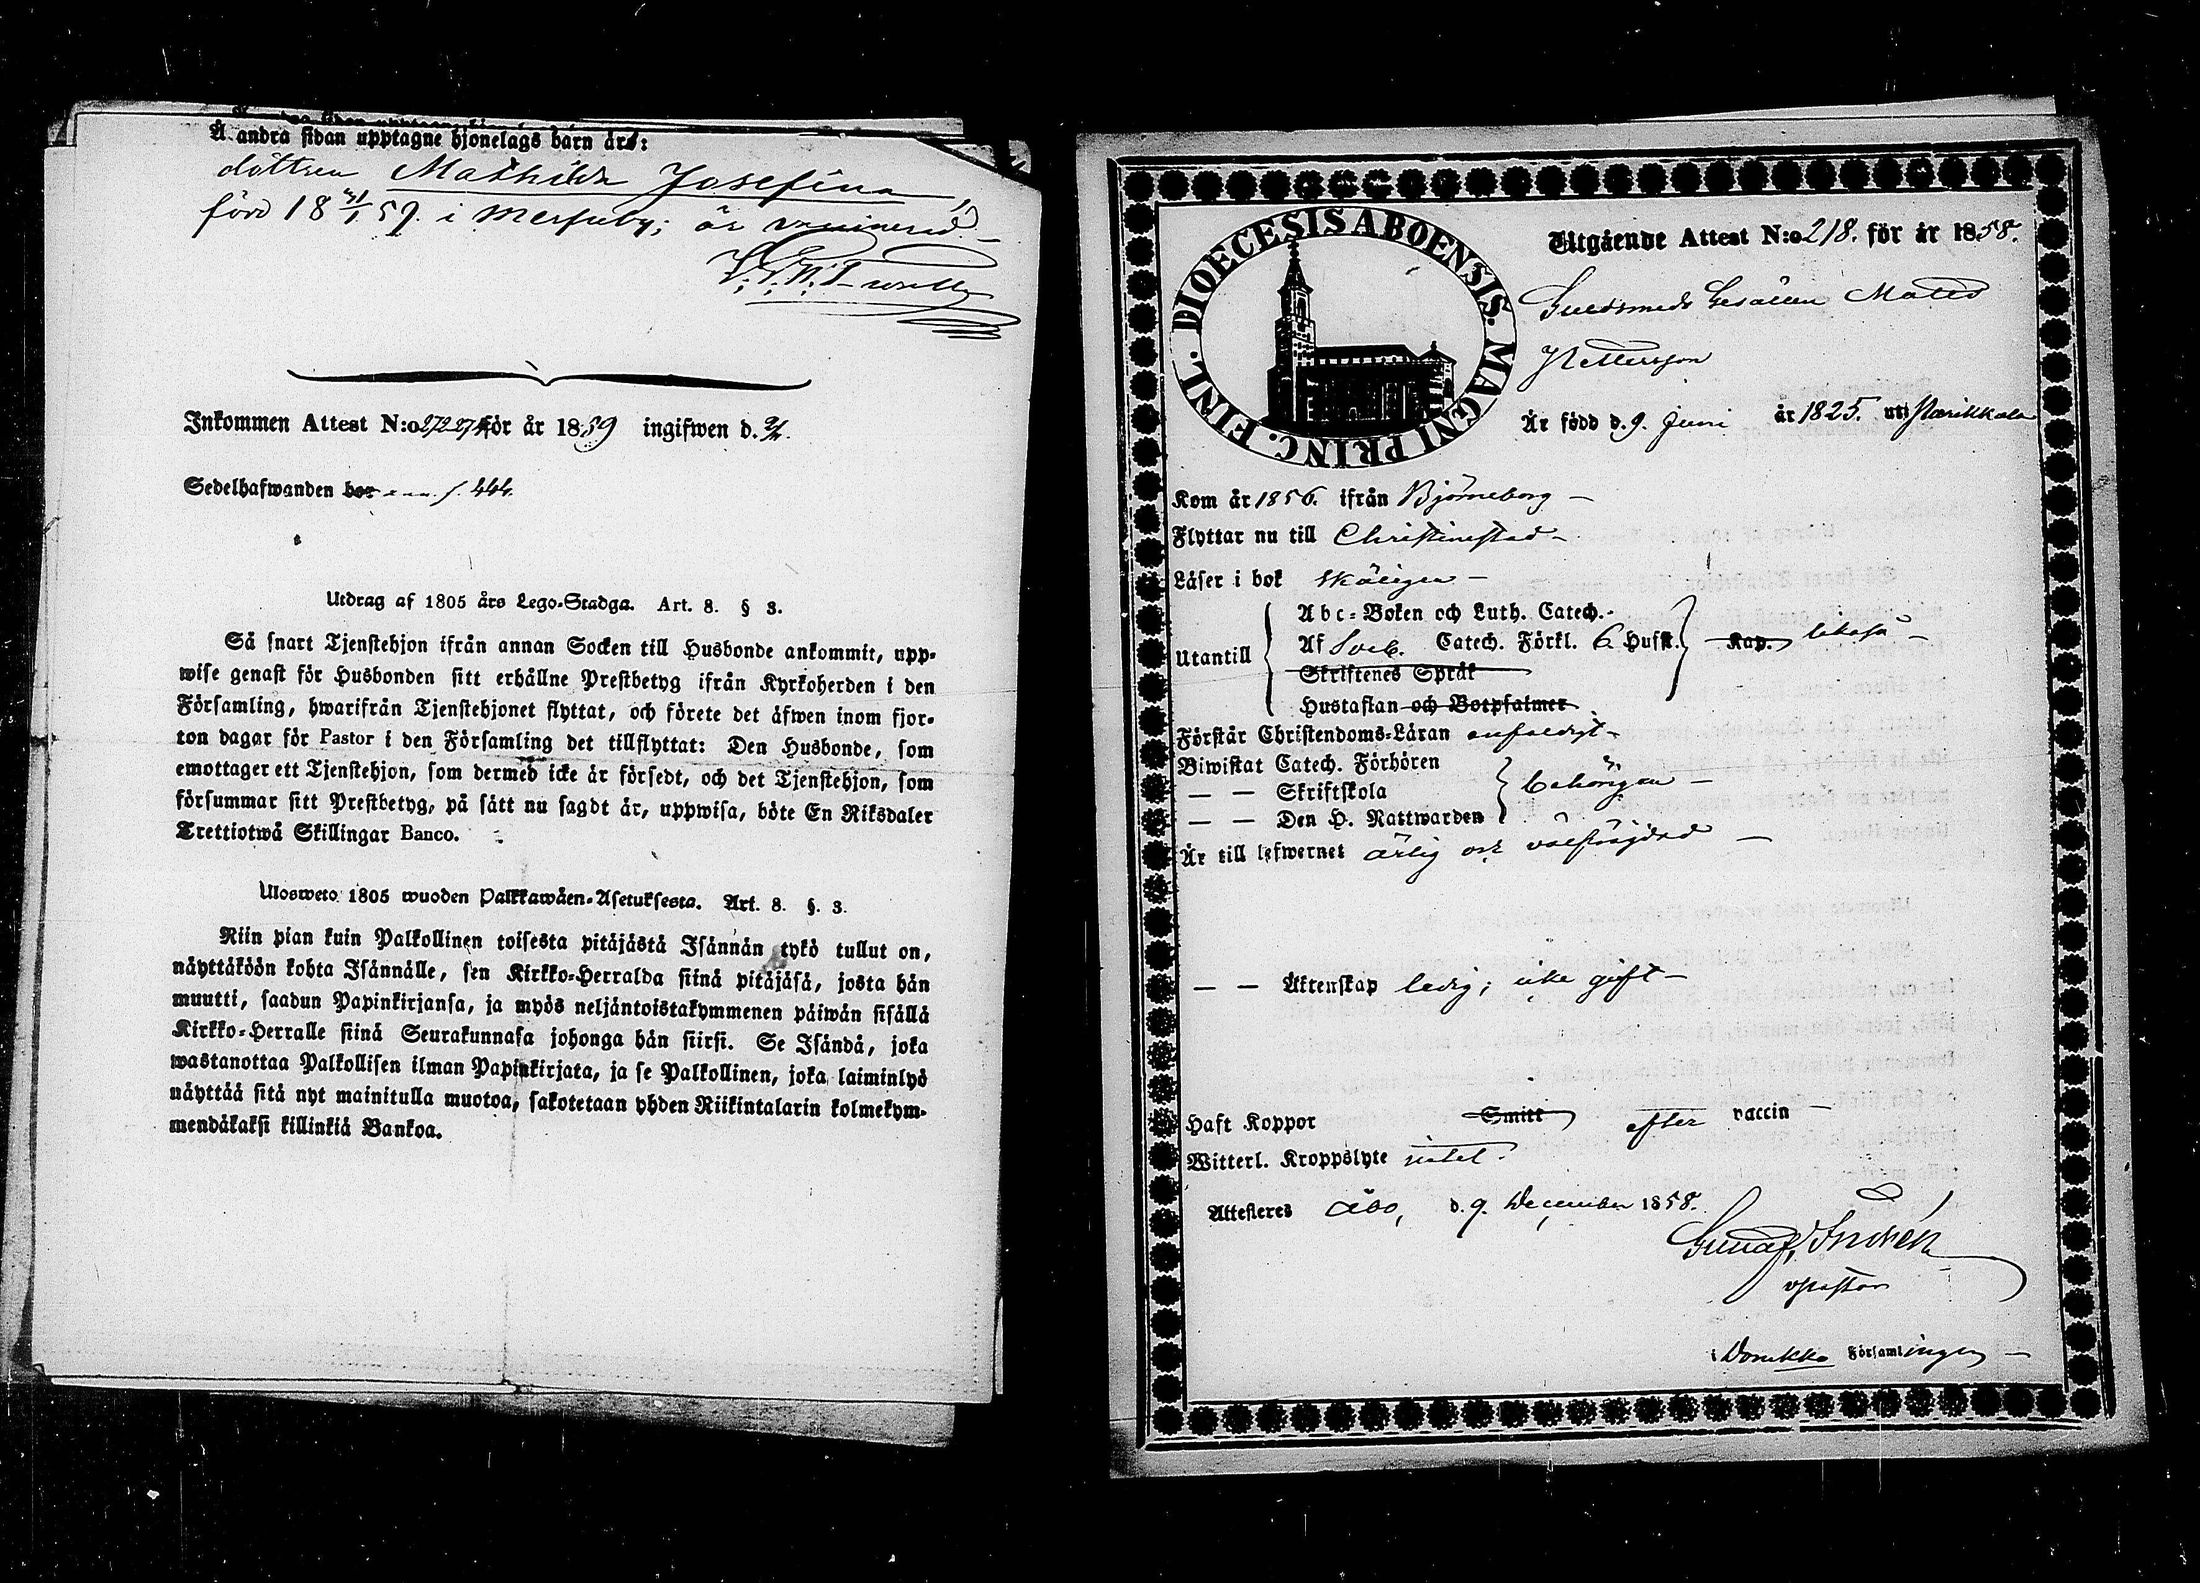 Å andra sidan upptagne hjonelags barn äro:
dottren Mathilda Josefina,
född 18 31/1 59. i Merfuby; är vaccinerad.
Inkommen Attest N:o 272. 274 för år 1859 ingifwen d.
Sedelhafwanden bor f. 444.
Utdrag af 1805 års Lego-Stadga. Art. 8. § 3.
Så snart Tjenstehjon ifrån annan Socken till Husbonde ankommit, upp-
wise genast för Husbonden sitt erhållne Prestbetyg ifrån Kyrkoherden i den
Församling, hwarifrån Tjenstehjonet flyttat, och förete det äfwen inom fjor-
ton dagar för Pastor i den Församling det tillflyttat: Den Husbonde, som
emottager ett Tjenstehjon, som dermed icke är försedt, och det Tjenstehjon, som
försummar sitt Prestbetyg, på sätt nu sagdt är, uppwisa, böte En Riksdaler
Trettiotwå Skillingar Banco.
Ulosweto 1805 wuoden Palkkawäen-Asetuksesta. Art. 8. §. 3.
Niin pian kuin Palkollinen toisesta pitäjästä Isännän tykö tullut on,
näyttäköön kohta Isännälle, sen Kirkko-Herralda siinä pitäjäsä, josta hän
muutti, saadun Papinkirjansa, ja myös neljäntoistakymmenen päiwän sisällä
Kirkko-Herralle siinä Seurakunnasa johonga hän siirsi. Se Isändä, joka
wastanottaa Palkollisen ilman Papinkirjata, ja se Palkollinen, joka laiminlyö
näyttää sitä nyt mainitulla muotoa, sakotetaan yhden Riikintalarin kolmekym-
mendäkaksi killinkiä Bankoa.
DIOECESIS ABOENSIS. MAGNI PRINC. FINL.
Utgående Attest N:o 218. för år 1858.
Guldsmeds Gesällen Mats
Pettersson
Är född d. 9. Juni år 1825. uti Parikkala
Kom år 1856. ifrån Björneborg –
Flyttar nu till Christinestad –
Läser i bok skäligen –
Utantill
Abc-Boken och Luth. Catech.
Af Sveb. Catech. Förkl. 6. Hufst. Kap. likaså –
Skriftenes Språk
Hustaflan och Botpsalmer
Förstår Christendoms-Läran enfaldigt –
Biwistat Catech. Förhören
— — Skriftskola behörigen –
— — Den H. Nattwarden
Är till lefwernet ärlig och välfrägdad –
— — Äktenskap ledig; icke gift –
Haft Koppor Smitt efter vaccin –
Witterl. Kroppslyte intet.
Attesteres Åbo, d. 9. December 1858.
Gustaf Indrén
vPastor
i Domkko Församlingen –